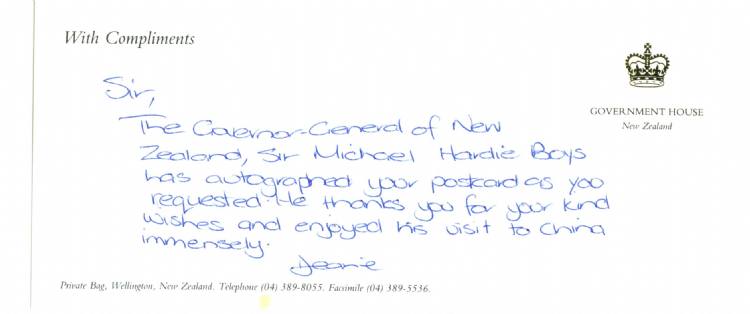 With Compliments
GOVERNMENT HOUSE
New Zealand
Sir,
The Governor-General of New
Zealand, Sir Michael Hardie Boys
has autographed your postcard as you
requested. He thanks you for your kind
wishes and enjoyed his visit to China
immensely.
Jeanie
Private Bag, Wellington, New Zealand. Telephone (04) 389-8055. Facsimile (04) 389-5536.